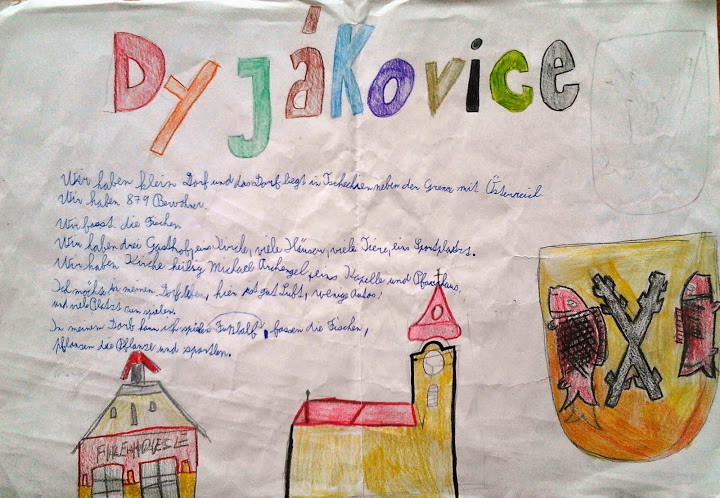 Dyjákovice
Wir haben klein Dorf und das Dorf liegt in Tschechien neben der Grenz mit Österreich
Wir haben 879 Bewohner
Wir fasst die Fischen
Wir haben drei Gasthof, eine Kirche, viele Häuser, viele Tiere, ein Sportplatzt.
Wir haben Kirche heilig Michael Archengel, eine Kapelle und Pfarrhaus,
Ich möchte in meinen Dorf leben, hier ist gut Luft, wenige Autos,
und viel Platzt zum spielen.
In meinem Dorf kann ich spielen Fußball, fassen die Fischen,
pflanzen die Pflanze und sportlen.
FIREHOUSE